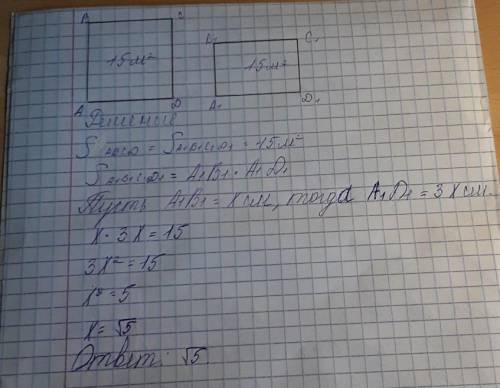 B C
B₁ C₁
15 м² 15 м²
A D A₁ D₁
Решение
S ABCD = S A₁B₁C₁D₁ = 15 м²
S A₁B₁C₁D₁ = A₁B₁ · A₁D₁
Пусть A₁B₁ = x см, тогда A₁D₁ = 3x см.
x · 3x = 15
3x² = 15
x² = 5
x = √5
Ответ: √5.